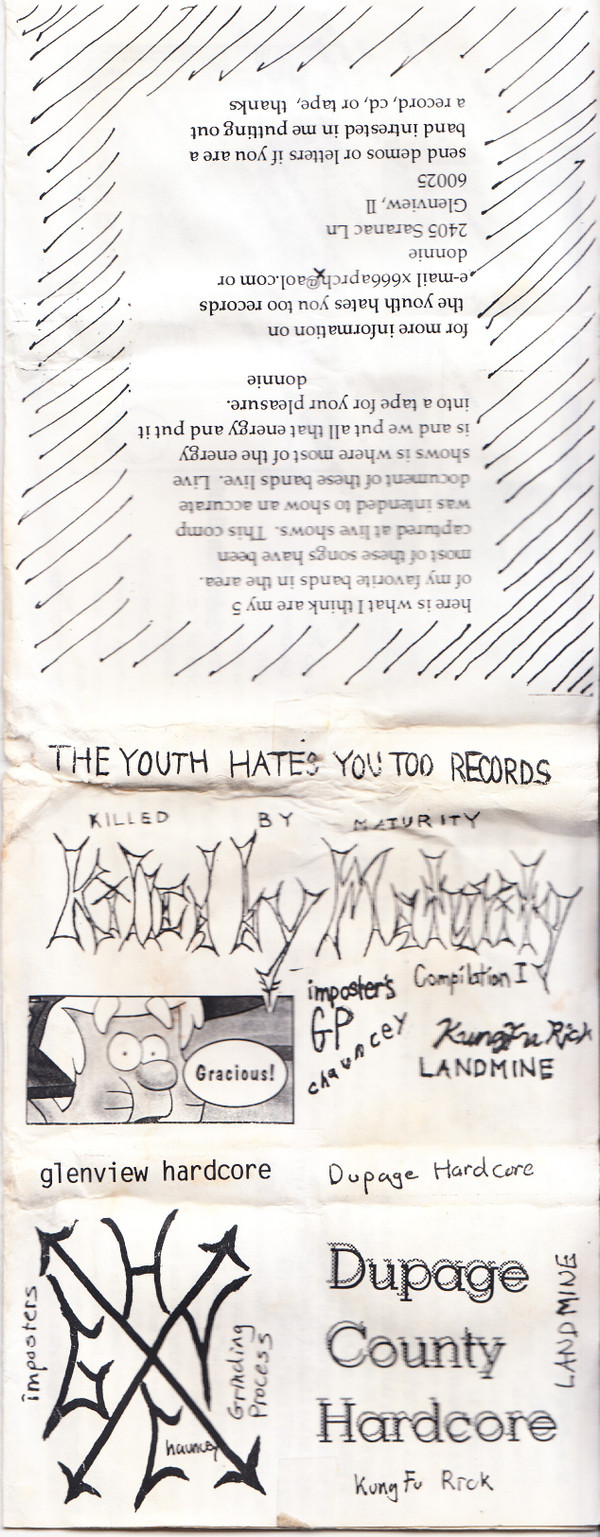 here is what I think are my 5
of my favorite bands in the area.
most of these songs have been
captured at live shows. This comp
was intended to show an accurate
document of these bands live. Live
shows is where most of the energy
is and we put all that energy and put it
into a tape for your pleasure.
donnie
for more information on
the youth hates you too records
e-mail x666aprchx@aol.com or
donnie
2405 Saranac Ln
Glenview, Il
60025
send demos or letters if you are a
band intrested in me putting out
a record, cd, or tape, thanks
THE YOUTH HATES YOU TOO RECORDS
KILLED BY MATURITY
Killed by Maturity
Compilation I
imposter's
GP
chauncey
KungFu Rick
LANDMINE
Gracious!
glenview hardcore
Dupage Hardcore
GHC
imposters
Grinding
Process
Chauncey
Dupage
County
Hardcore
LANDMINE
Kung Fu Rick